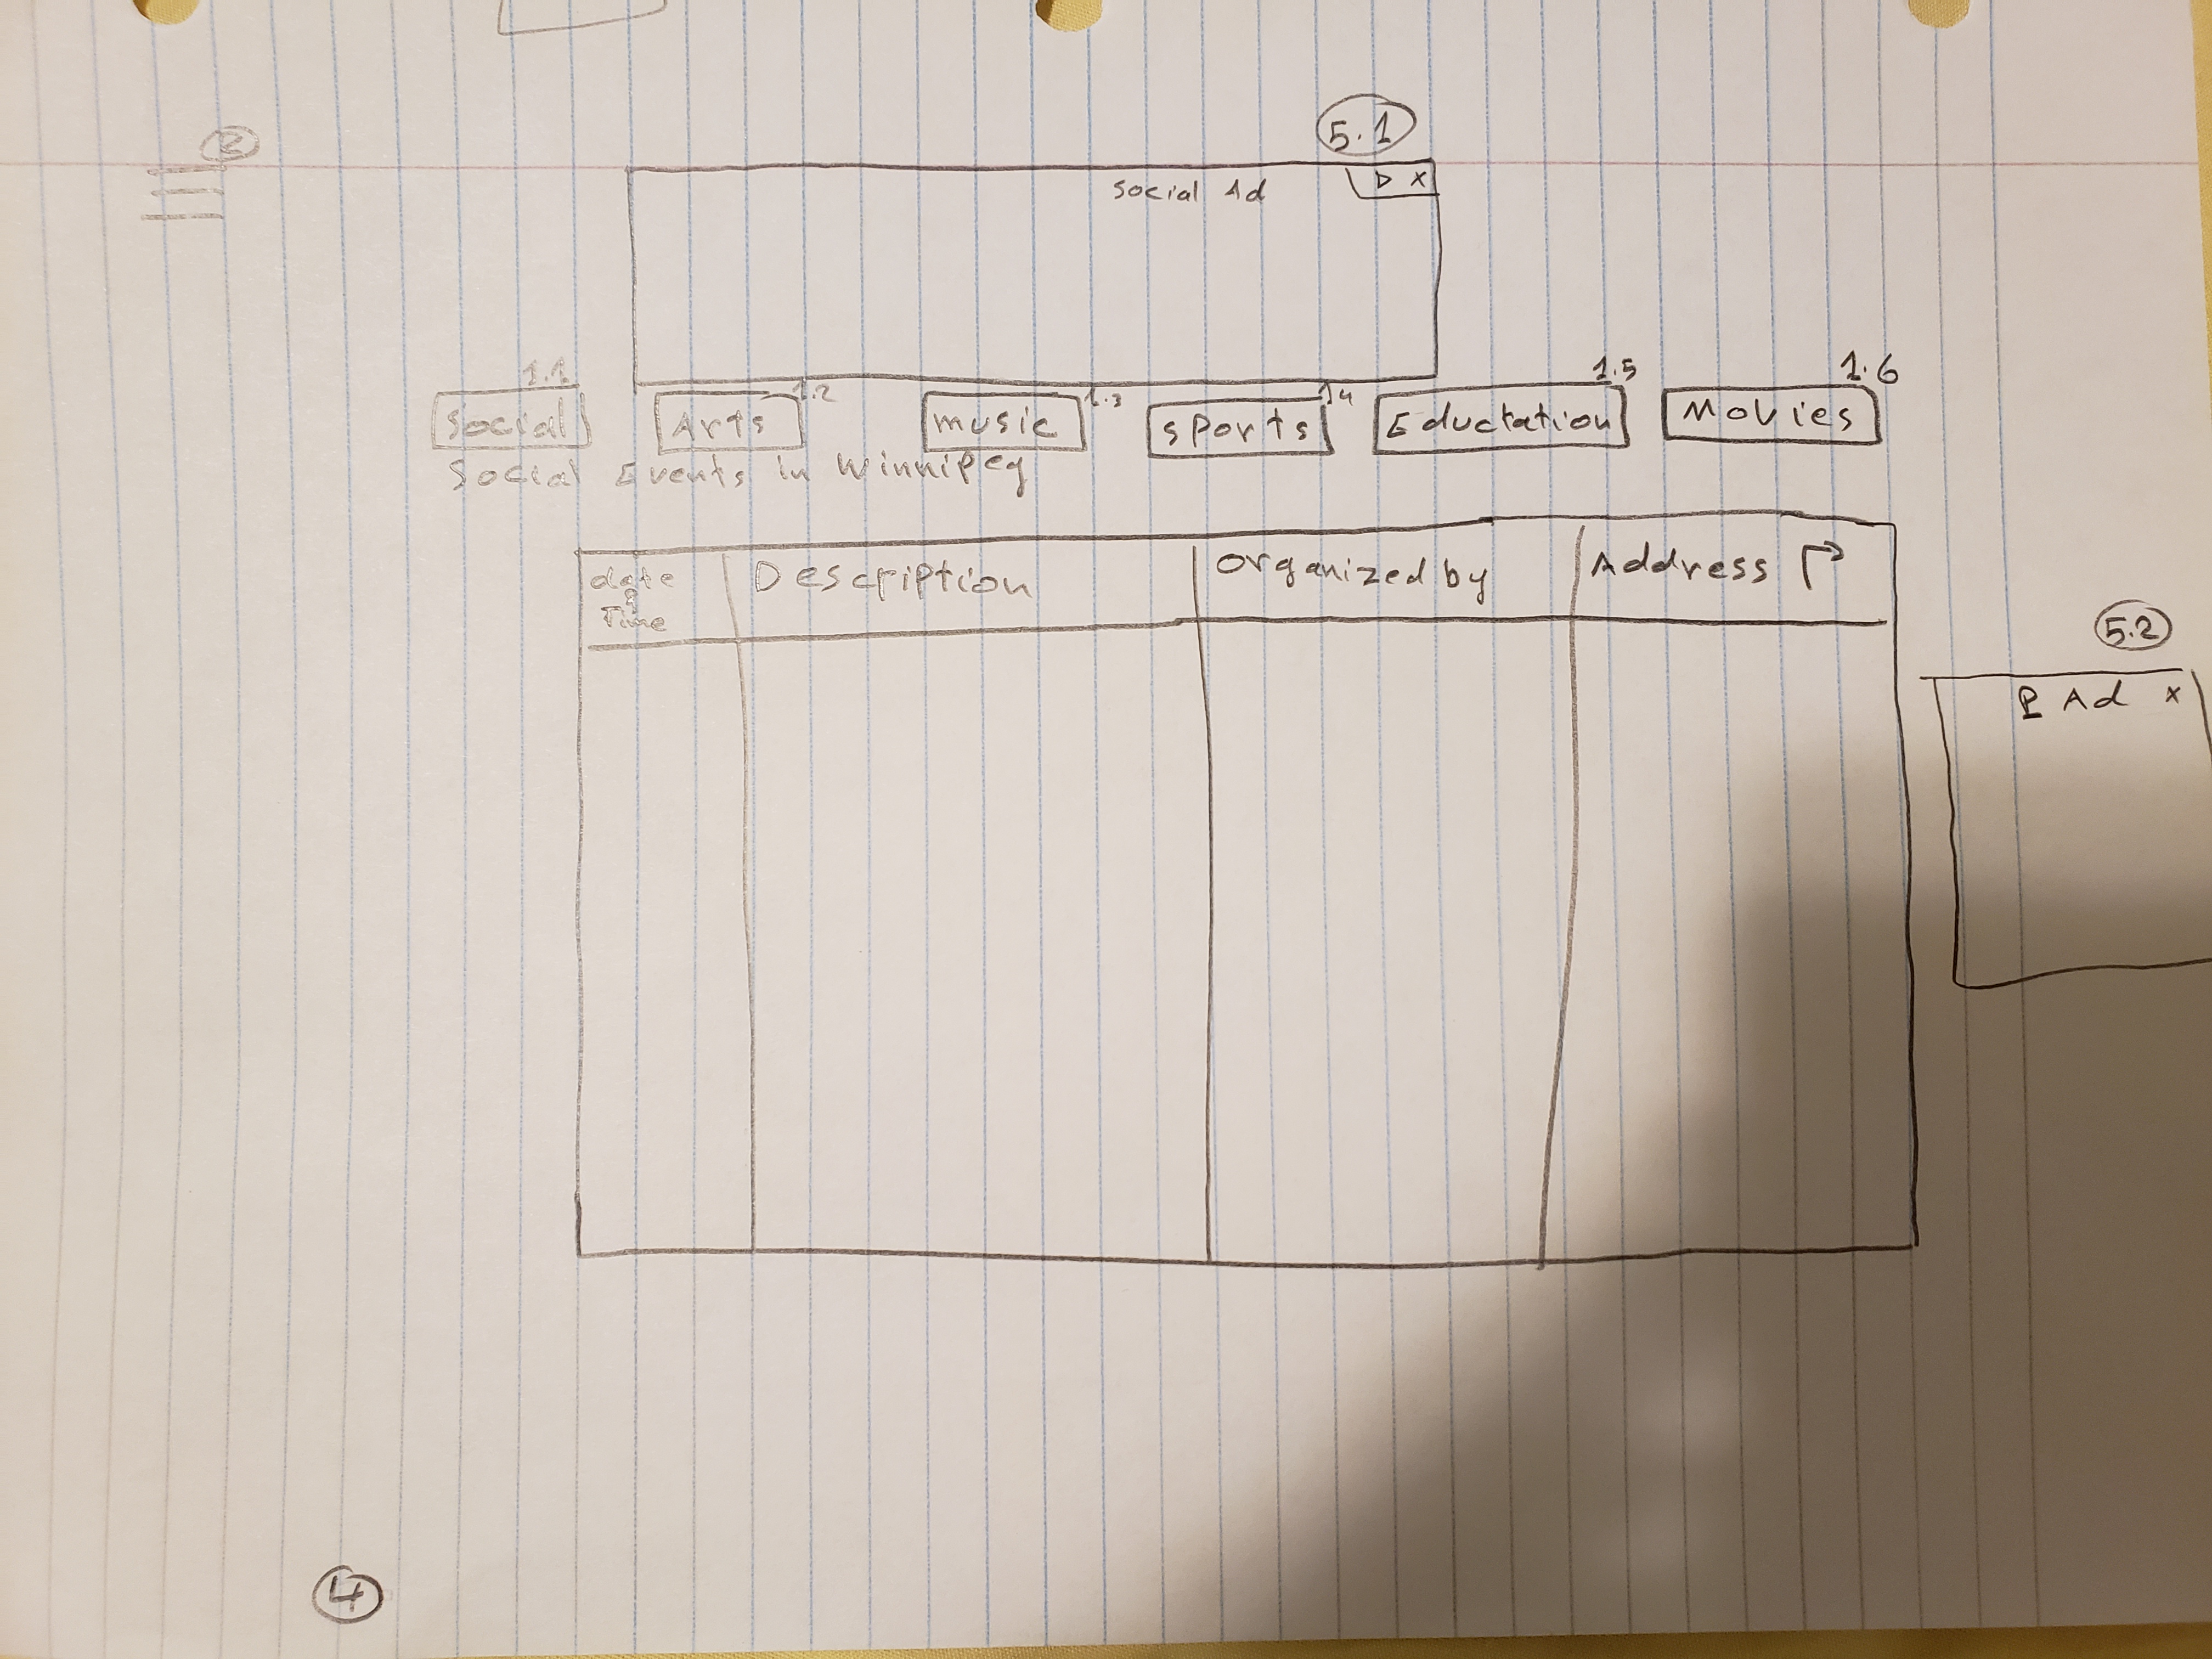 5.1
2
Social Ad ▷ x
1.1 1.2 1.3 1.4 1.5 1.6
Social Arts music sports Eductation Movies
Social Events in Winnipeg
date & Time Description Organized by Address
5.2
P Ad x
4